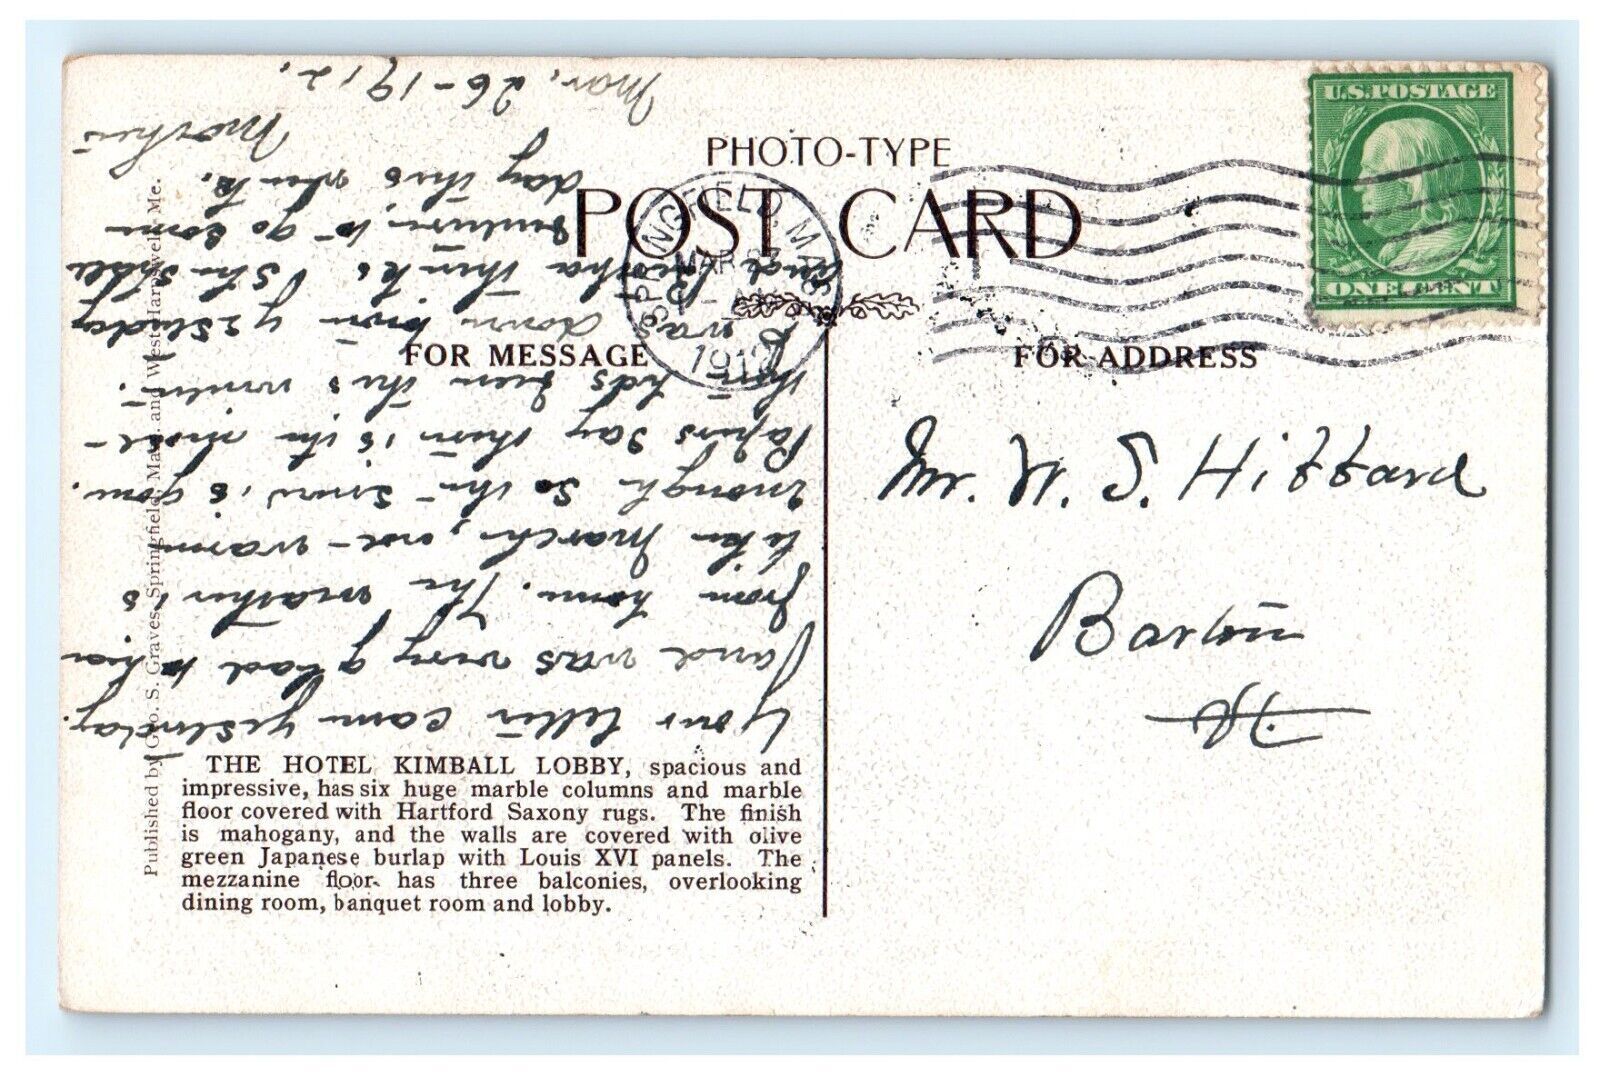 U.S. POSTAGE
ONE CENT
PHOTO-TYPE
POST CARD
SPRINGFIELD, MASS.
MAR 2
1912
FOR MESSAGE
FOR ADDRESS
Mr. W. S. Hibbard
Barton
Vt.
Your letter came yesterday
and was very glad to hear
from home. The weather is
like March, not warm
enough so the snow is gone.
Papers say this is the most
this winter.
B was down town yesterday
and thinks she shall
venture to go some
day this week.
Mother
Mar. 26-1912.
THE HOTEL KIMBALL LOBBY, spacious and
impressive, has six huge marble columns and marble
floor covered with Hartford Saxony rugs. The finish
is mahogany, and the walls are covered with olive
green Japanese burlap with Louis XVI panels. The
mezzanine floor has three balconies, overlooking
dining room, banquet room and lobby.
Published by Geo. S. Graves, Springfield, Mass. and West Harpswell, Me.